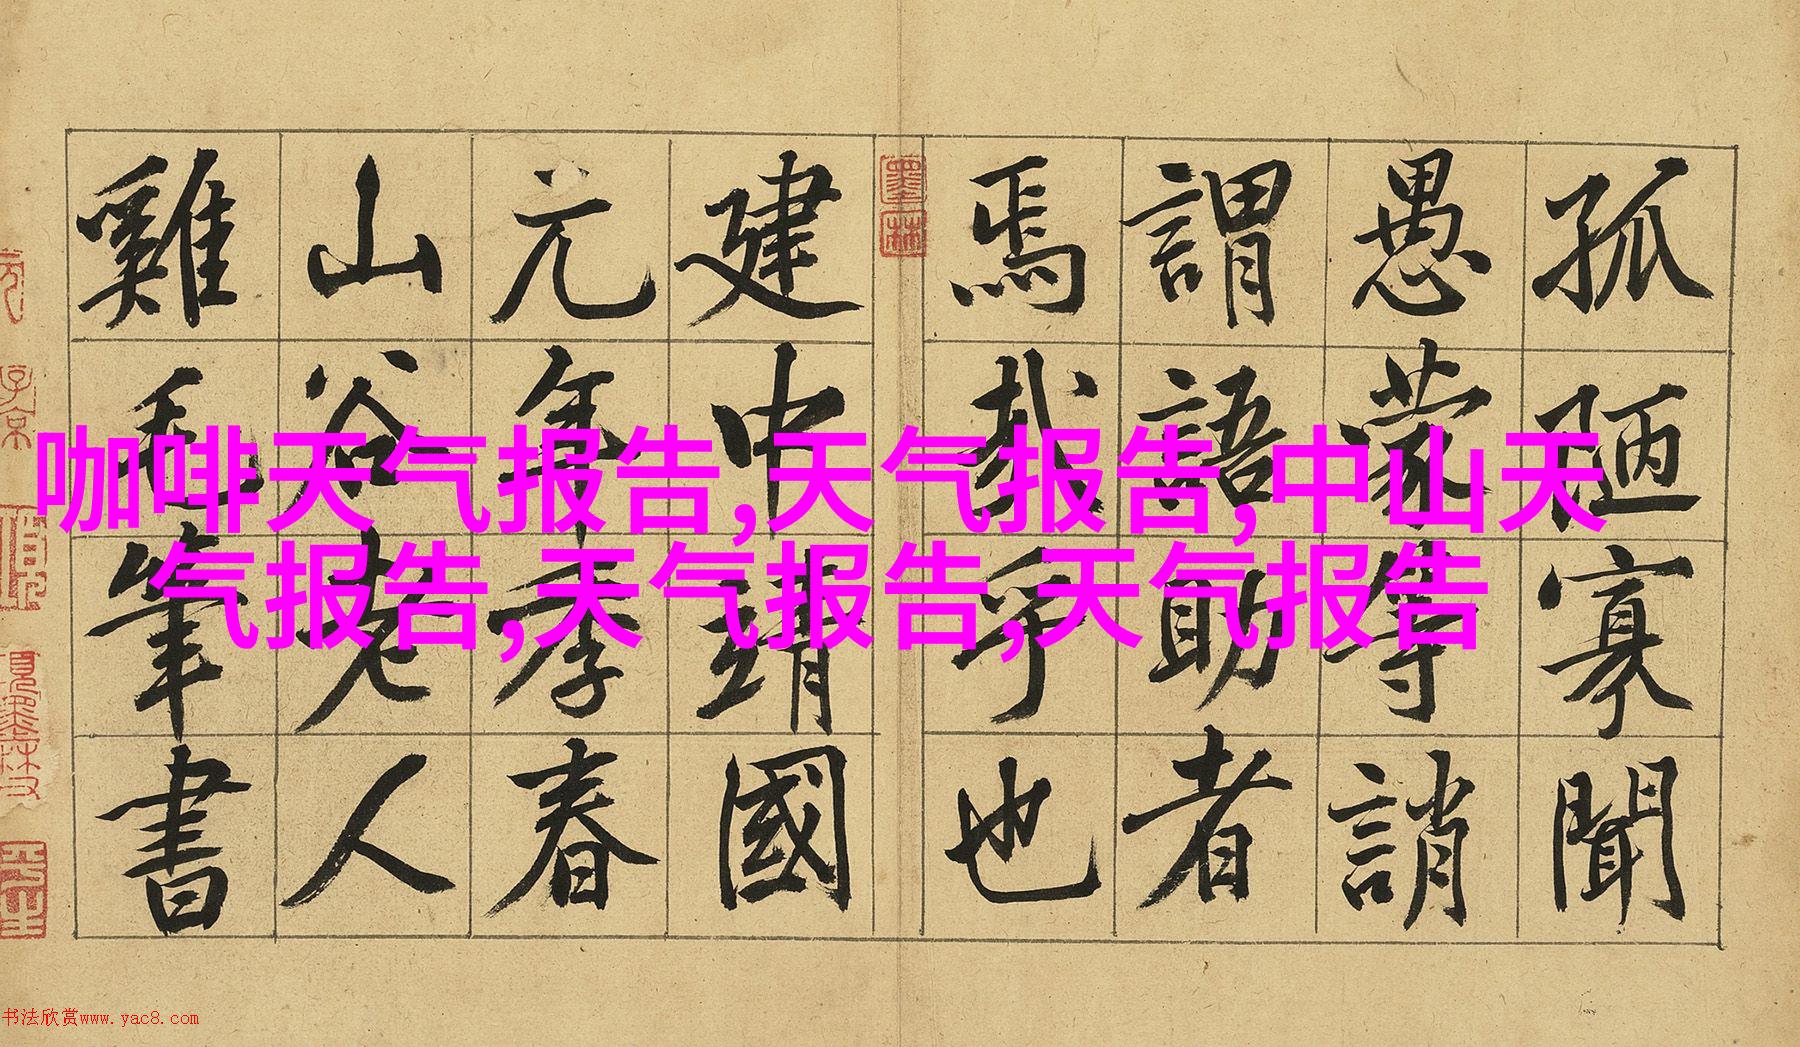 孤陋寡聞
愚蒙等誚
謂語助者
焉哉乎也
建中靖國
元年季春
山谷老人
雞毛筆書
墨林
咖啡天气报告,天气报告,中山天
气报告,天气报告,天气报告
书法欣赏www.yac8.com